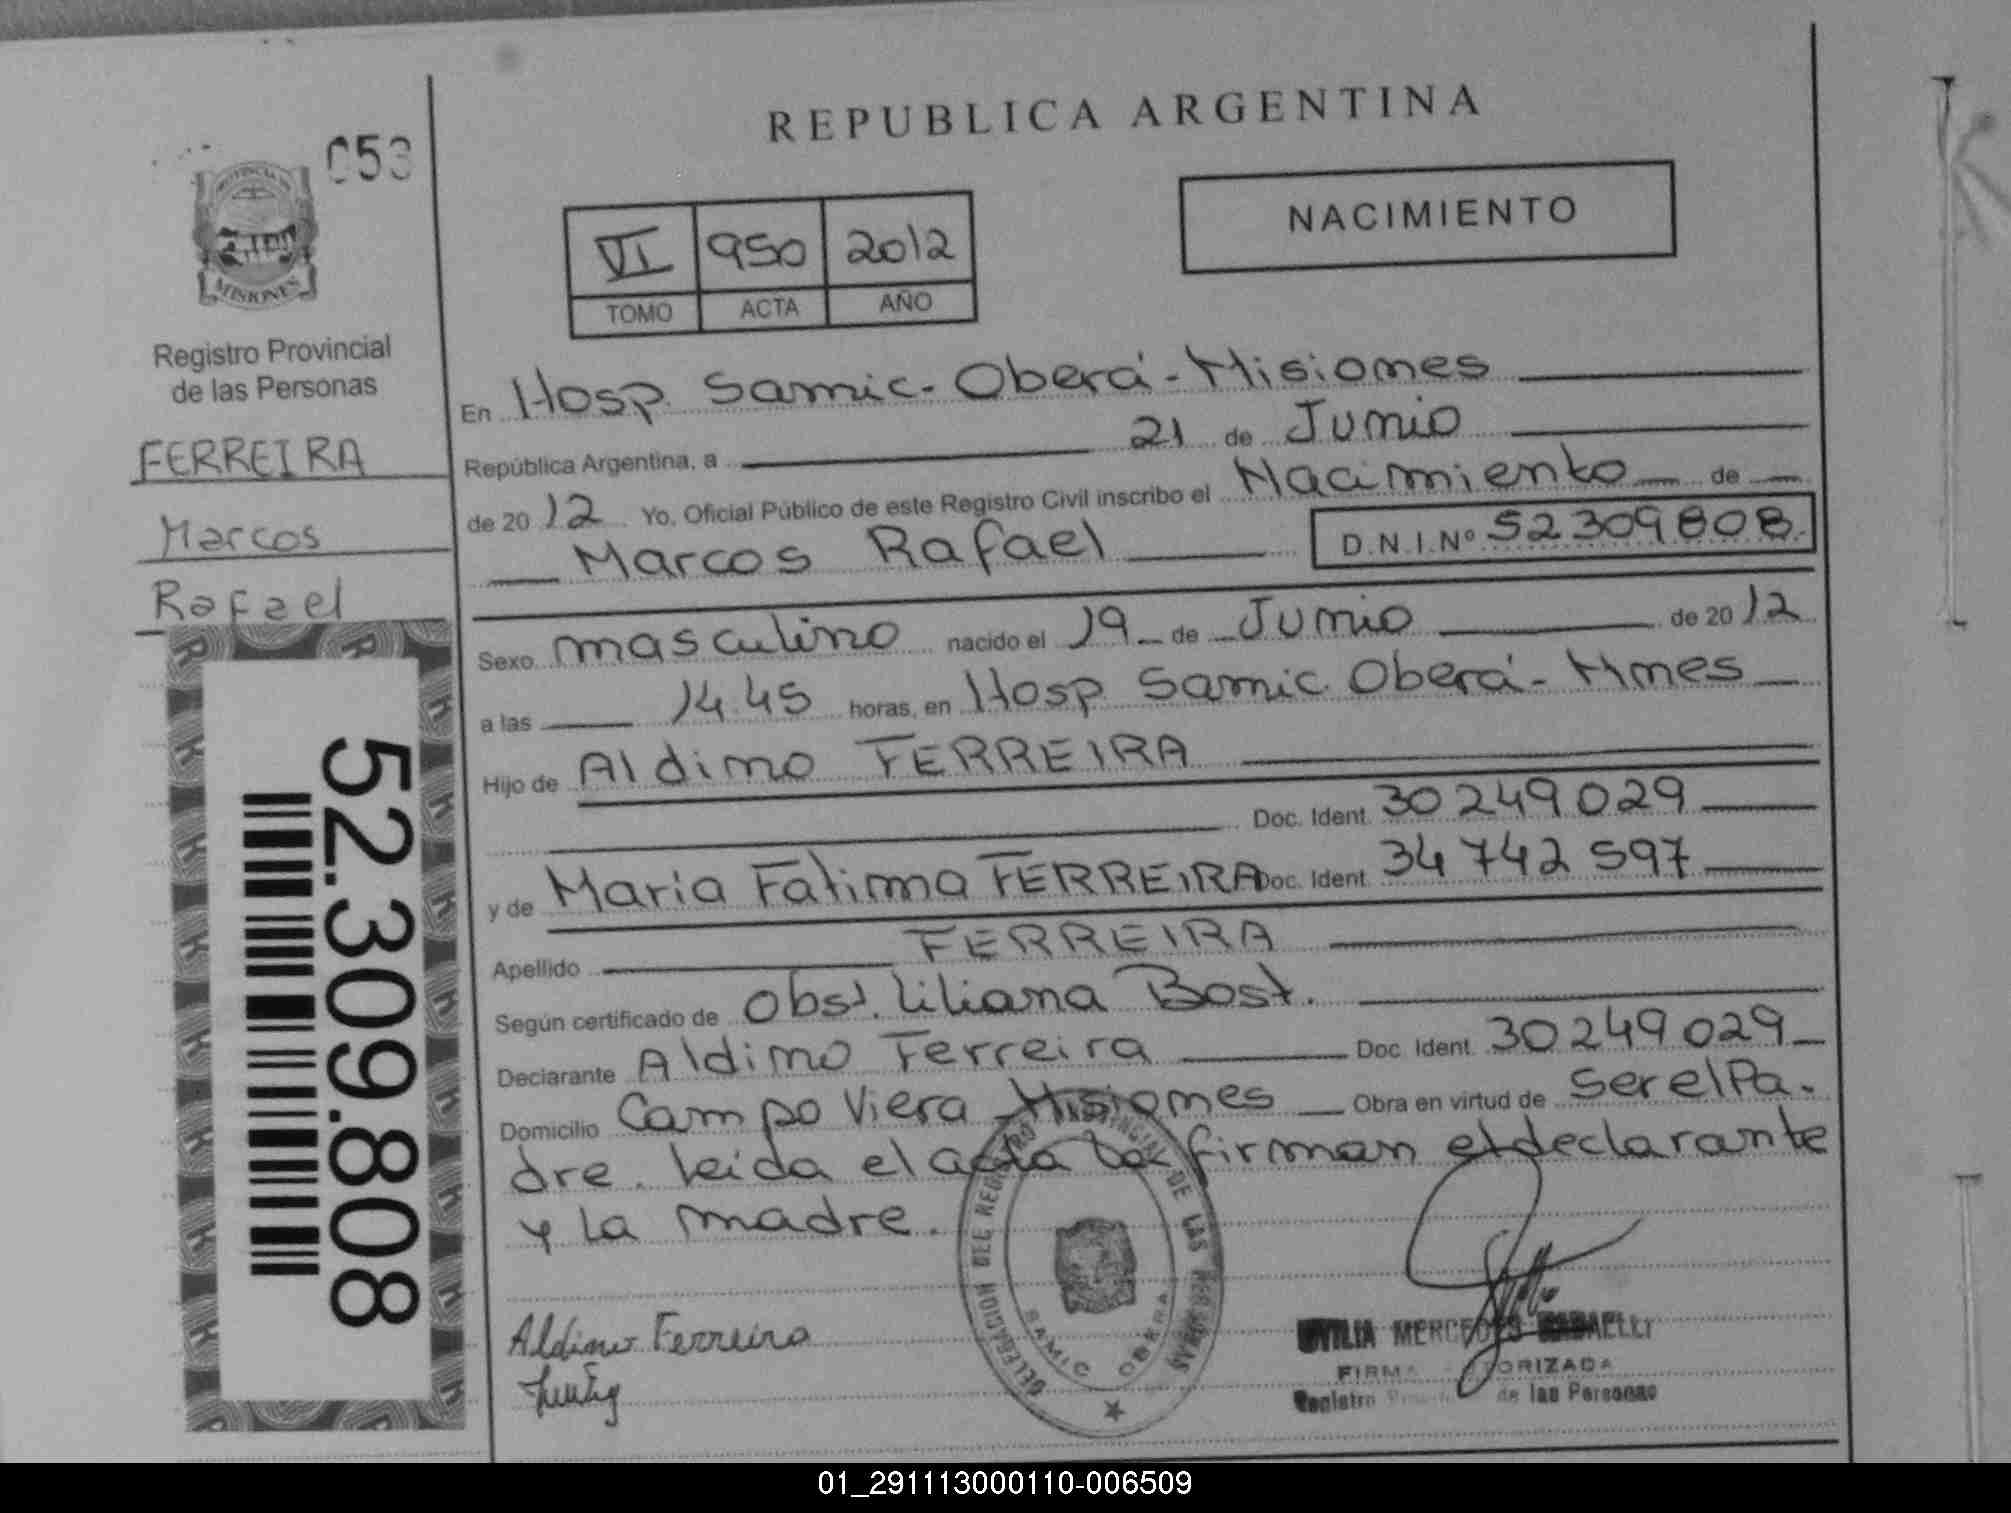 053
PROVINCIA DE
MISIONES
Registro Provincial
de las Personas
FERREIRA
Marcos
Rafael
52.309.808
REPUBLICA ARGENTINA
NACIMIENTO
VI 950 2012
TOMO ACTA AÑO
En Hosp. Samic - Oberá - Misiones
República Argentina, a 21 de Junio
de 20 12 Yo, Oficial Público de este Registro Civil inscribo el Nacimiento de
Marcos Rafael D.N.I.Nº 52309808
Sexo masculino nacido el 19 de Junio de 20 12
a las 14.45 horas, en Hosp Samic. Oberá - Mnes
Hijo de Aldino FERREIRA
Doc. Ident. 30249029
y de Maria Fatima FERREIRA Doc. Ident. 34742597
Apellido FERREIRA
Según certificado de Obst. Liliana Bost.
Declarante Aldino Ferreira Doc. Ident. 30249029
Domicilio Campo Viera Misiones Obra en virtud de ser el Pa-
dre. Leida el acta firman el declarante
y la madre.
DELEGACION DEL REGISTRO PROVINCIAL DE LAS PERSONAS
SAMIC OBERA
Aldino Ferreira
MERCEDES
FIRMA AUTORIZADA
Registro de las Personas
01_291113000110-006509